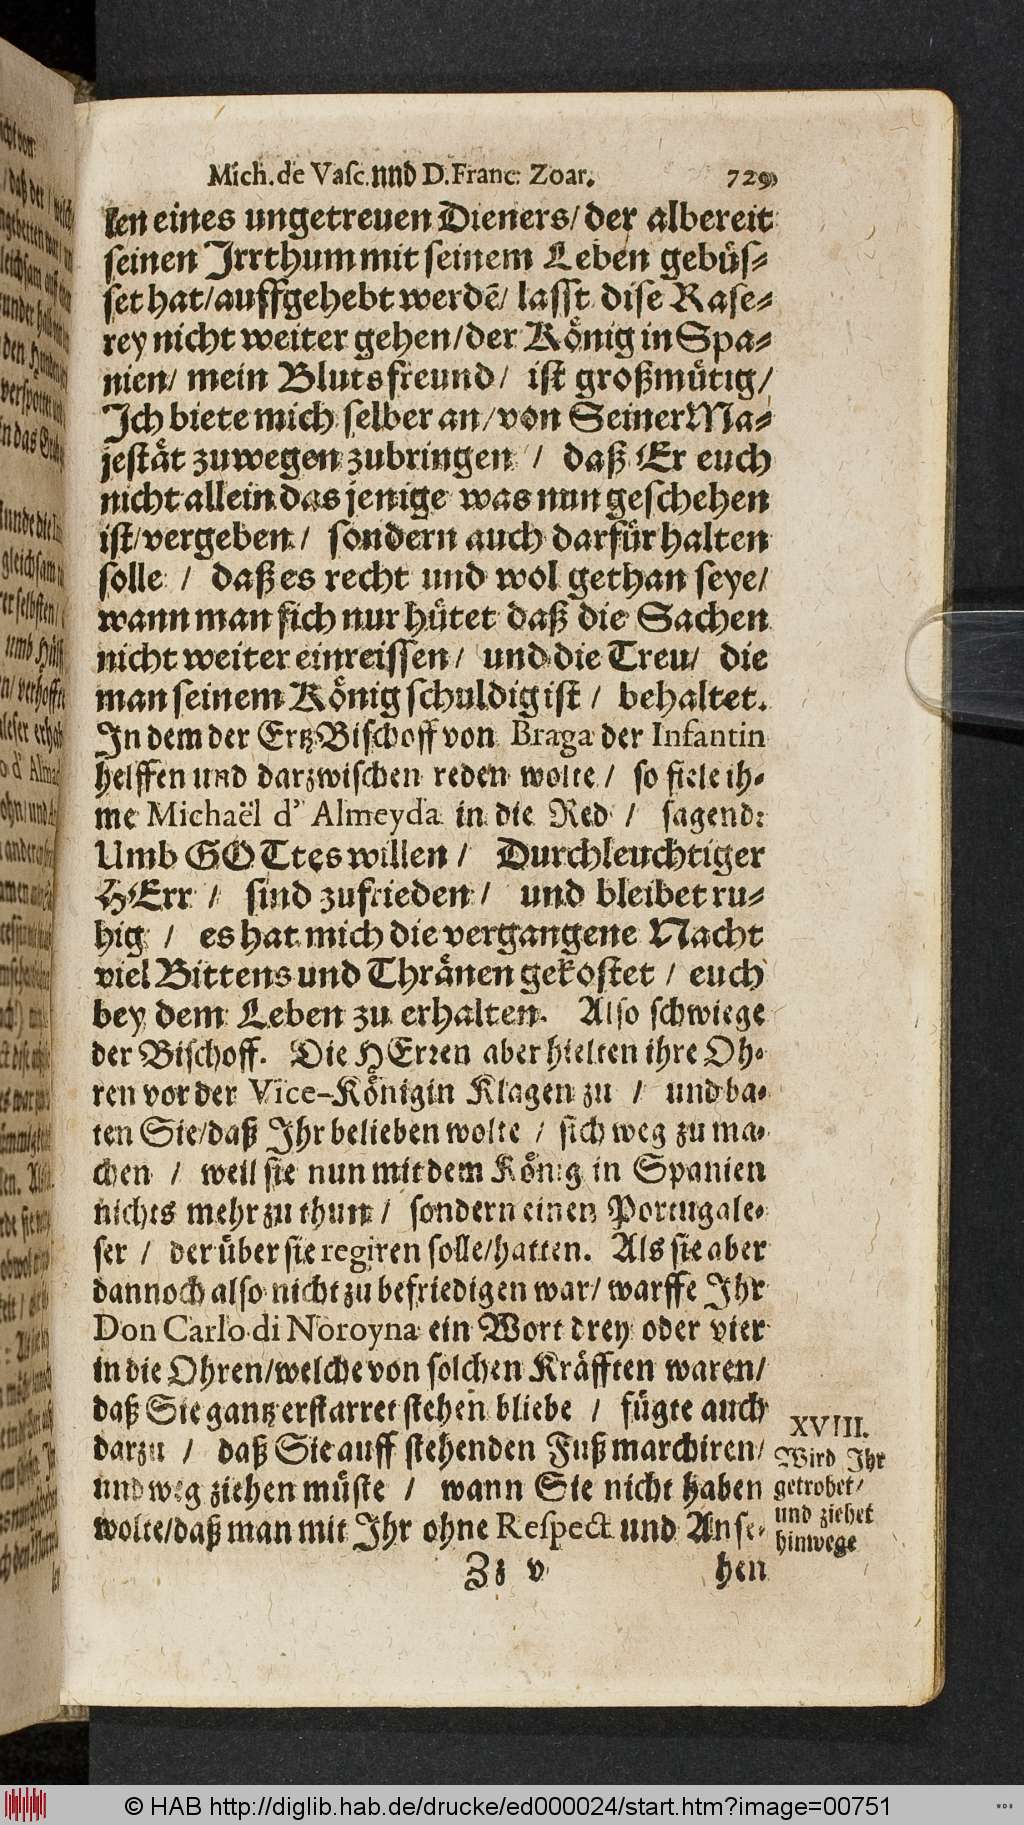 Mich. de Vasc. und D. Franc: Zoar. 729
len eines ungetreuen Dieners/ der albereit
seinen Irrthum mit seinem Leben gebüs-
set hat/ auffgehebt werdē/ lasst dise Rase-
rey nicht weiter gehen/ der König in Spa-
nien/ mein Blutsfreund/ ist großmütig/
Ich biete mich selber an/ von Seiner Ma-
jestät zuwegen zubringen / daß Er euch
nicht allein das jenige was nun geschehen
ist/ vergeben/ sondern auch darfür halten
solle / daß es recht und wol gethan seye/
wann man sich nur hütet daß die Sachen
nicht weiter einreissen/ und die Treu/ die
man seinem König schuldig ist / behaltet.
In dem der ErtzBischoff von Braga der Infantin
helffen und darzwischen reden wolte / so fiele ih-
me Michaël d' Almeyda in die Red / sagend:
Umb GOTtes willen / Durchleuchtiger
HErr / sind zufrieden / und bleibet ru-
hig / es hat mich die vergangene Nacht
viel Bittens und Thränen gekostet / euch
bey dem Leben zu erhalten. Also schwiege
der Bischoff. Die HErren aber hielten ihre Oh-
ren vor der Vice-Königin Klagen zu / und ba-
ten Sie/ daß Ihr belieben wolte / sich weg zu ma-
chen / weil sie nun mit dem König in Spanien
nichts mehr zu thun / sondern einen Portugale-
ser / der über sie regiren solle/ hatten. Als sie aber
dannoch also nicht zu befriedigen war/ warffe Ihr
Don Carlo di Noroyna ein Wort drey oder vier
in die Ohren/ welche von solchen Kräfften waren/
daß Sie gantz erstarret stehen bliebe / fügte auch
darzu / daß Sie auff stehenden Fuß marchiren/
und weg ziehen müste / wann Sie nicht haben
wolte/ daß man mit Ihr ohne Respect und Anse-
Zz v hen
XVIII.
Wird Ihr
getrohet/
und ziehet
hinwege
© HAB http://diglib.hab.de/drucke/ed000024/start.htm?image=00751